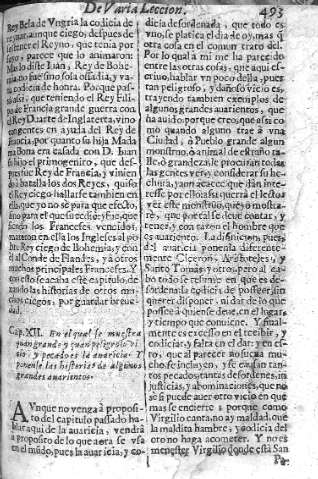 De Varia Leccion.
493
Rey Bela de Vngria la codicia de
reynar, aunque ciego, despues de
auer tenet el Reyno, que tenia por
peso, parece que lo animaron.
Mas lo quiero a Iuan, Rey de Bohe-
mia no fue sino sola osadia, y va-
na codicia de honra. Porque pas-
so assi, que teniendo el Rey Fili-
po de Francia grande guerra con
el Rey Duarte de Inglaterra, vino
con gentes en ayuda del Rey de
Francia, por quanto su hija Mada-
ma Bona era casada con D. Iuan
su hijo el primogenito, que des-
pues fue Rey de Francia, y vinien
do a batalla los dos Reyes, quiso
el Rey ciego hallarse tambien en
ella, que yo no se para que efecto,
sino para el que sucedio: y fue, que
siendo los Franceses vencidos,
mataron en ella los Ingleses al po-
bre Rey ciego de Bohemia, y con
el al Conde de Flandes, y a otros
muchos principales Franceses. Y
en esto se acaba este capitulo de-
xando las historias de otros mu-
chos ciegos, por guardar la breue-
dad.
Cap. XII. En el qual se muestra
quan grande y quan peligroso vi-
cio, y pecado es la auaricia: Y
ponense las historias de algunos
grandes auarientos.
AVnque no venga à proposi-
to del capitulo passado ha-
blar aqui de la auaricia, vendrà
a proposito de lo que aora se vsa
en el mũdo, pues la auaricia, y co-
dicia desordenada, que todo es
vno, se platica el dia de oy, mas q̃
otra cosa en el comun trato del.
Por lo qual a mi me ha parecido
entre las otras cosas, que aqui es-
criuo, hablar vn poco della, pues
tan peligroso, y dañoso vicio es,
trayendo tambien exemplos de
algunos grandes auarientos, que
ha auido: porque creo, que assi co-
mo quando alguno trae à vna
Ciudad, ò Pueblo grande algun
monstruo, ò animal de estraño ta-
lle, ò grandeza, le procuran todas
las gentes ver, y considerar su he-
chura, y aun acaece que dan inte-
resse por ello: assi querrà el lector
ver este monstruo, que yo mostra-
re, que por tal se deue contar, y
tener, y con razon el hombre que
es auariento. La difinicion, pues
de la auaricia ponenla diferente-
mente Ciceron, Aristoteles, y
Santo Tomas, y otros, pero al ca-
bo todo se resume en que es de-
sordenada codicia de posseer, sin
querer disponer, ni dar de lo que
possee à quien se deue, en el lugar,
y tiempo que conuiene. Y igual-
mente es excesso en el recibir, y
codiciar, y falta en el dar: y en es-
tos, que al parecer no suena mu-
cho, se incluyen, y se causan tan-
tos pecados, tantas desordenes, in-
justicias, y abominaciones, que no
se si puede auer otro vicio en que
mas se encierre: porque como
Virgilio canta, no ay maldad, que
la maldita hambre, y codicia del
oro no haga acometer. Y no es
menester Virgilio donde està San
Pa-